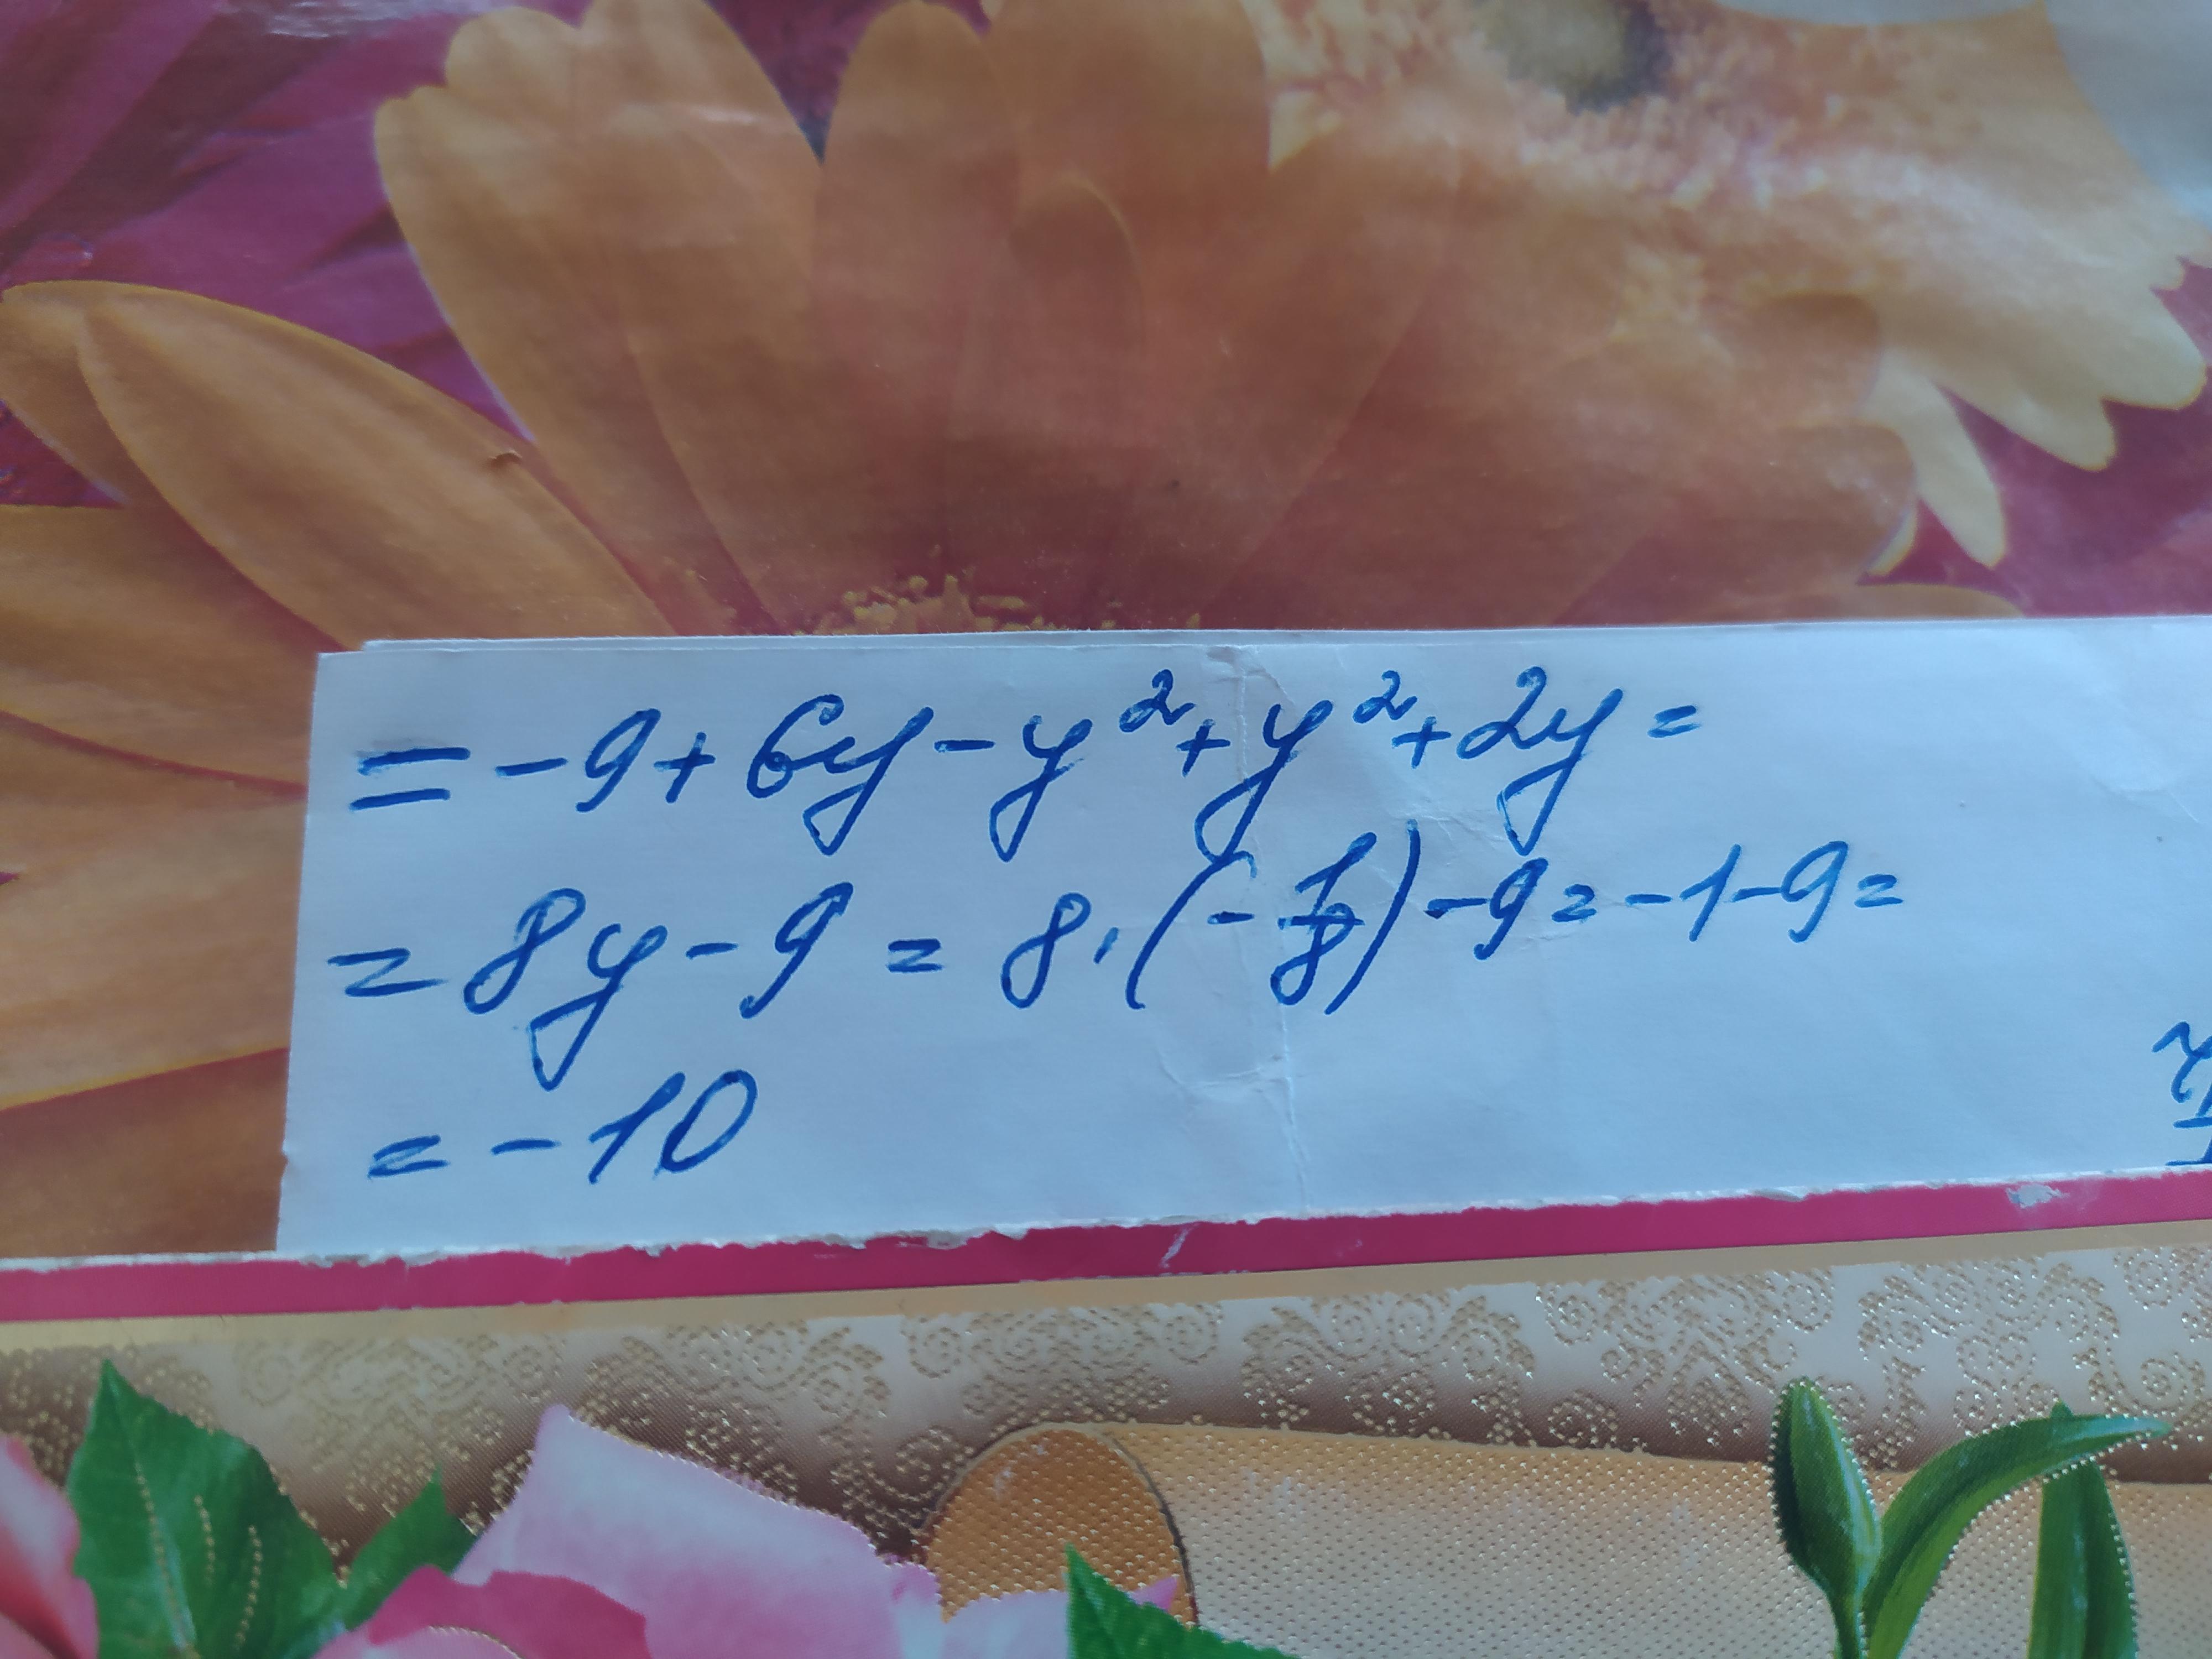 = -9 + 6y - y² + y² + 2y =
= 8y - 9 = 8 · (- 1/8) - 9 = -1 - 9 =
= -10